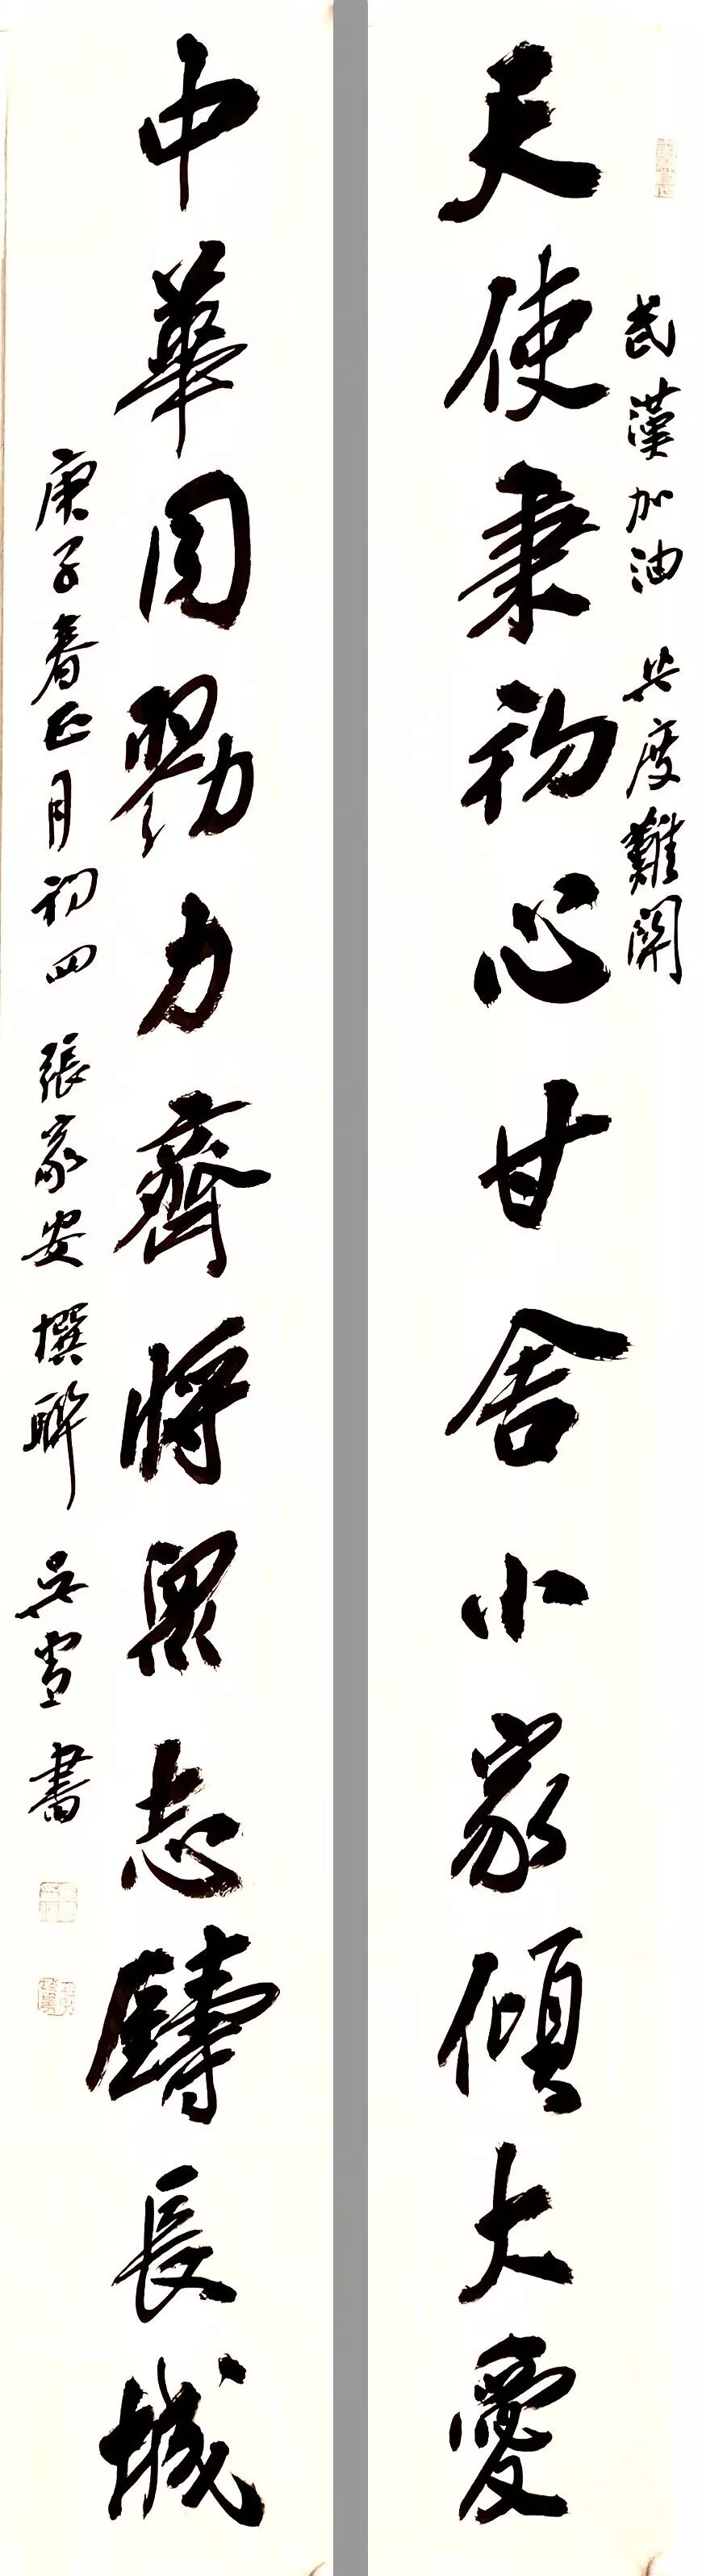 武漢加油 共度難關
天使秉初心甘舍小家傾大愛
中華同勠力齊將眾志鑄長城
庚子春正月初四 張家安 撰聯 吳雪 書